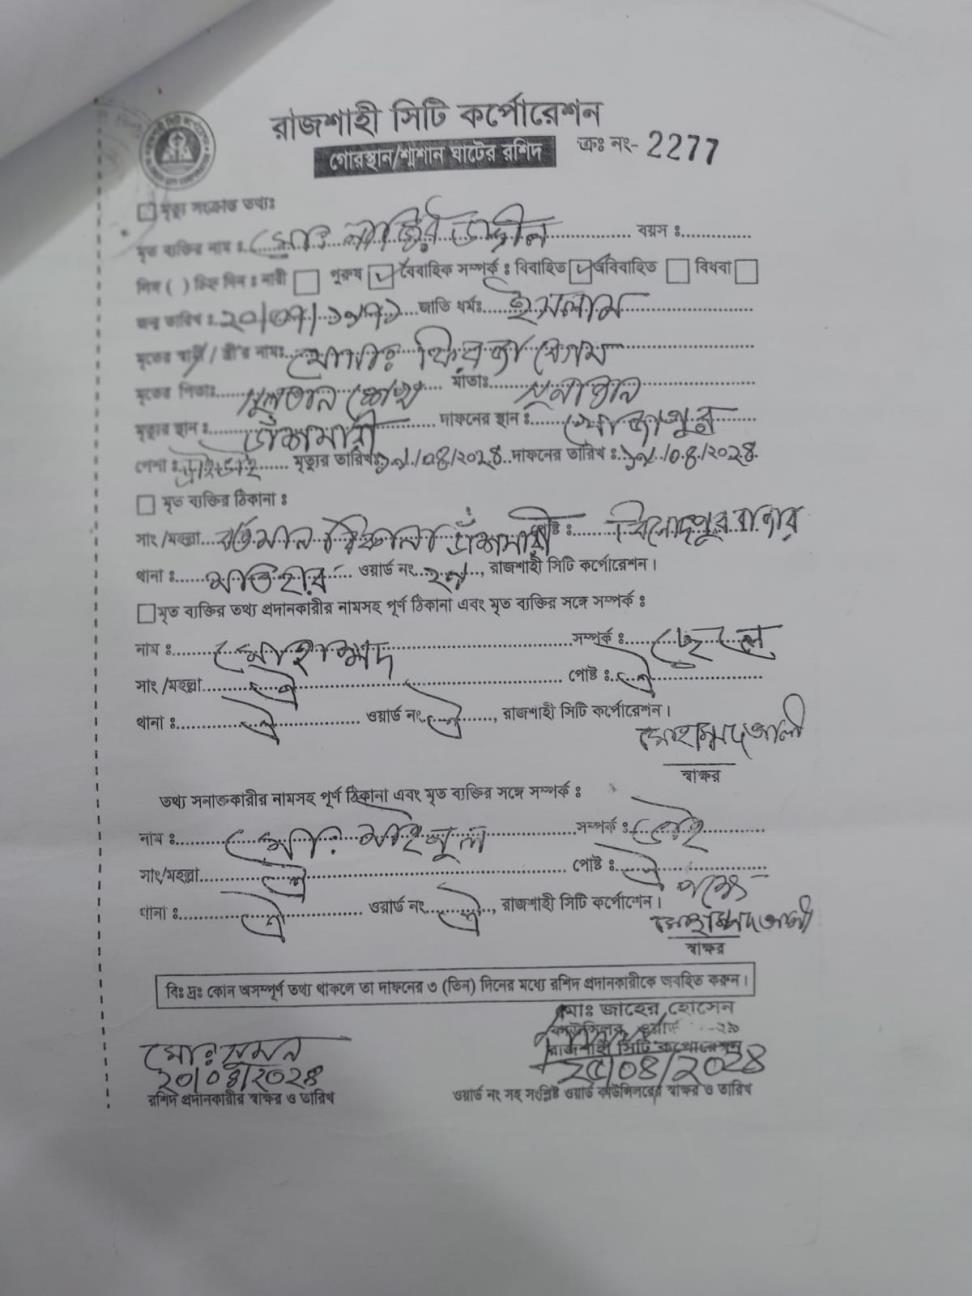 রাজশাহী সিটি কর্পোরেশন
গোরস্থান/শ্মশান ঘাটের রশিদ ক্রঃ নং- 2277
মৃত্যু সংক্রান্ত তথ্যঃ
মৃত ব্যক্তির নাম : মোঃ নাছির উদ্দীন বয়স :
টিক ( ) চিহ্ন দিন : নারী পুরুষ বৈবাহিক সম্পর্ক : বিবাহিত অবিবাহিত বিধবা
জন্ম তারিখ : ২০/০৭/১৯৭১ জাতি ধর্মঃ ইসলাম
মৃতের স্বামী / স্ত্রী'র নামঃ মোসাঃ ফিরোজা বেগম
মৃতের পিতাঃ সুলতান শেখ মাতাঃ
মৃত্যুর স্থান : ডাঁশমারী দাফনের স্থান : খোজাপুর
পেশা : মৃত্যুর তারিখঃ ১৯/০৪/২০২৪ দাফনের তারিখ : ১৯/০৪/২০২৪
মৃত ব্যক্তির ঠিকানা :
সাং/মহল্লা বর্তমান ঠিকানা ডাঁশমারী পোষ্ট : বিনোদপুর বাজার
থানা : মতিহার ওয়ার্ড নং ২৯, রাজশাহী সিটি কর্পোরেশন।
মৃত ব্যক্তির তথ্য প্রদানকারীর নামসহ পূর্ণ ঠিকানা এবং মৃত ব্যক্তির সঙ্গে সম্পর্ক :
নাম : মোহাম্মদ সম্পর্ক : ছেলে
সাং/মহল্লা ঐ পোষ্ট : ঐ
থানা : ঐ ওয়ার্ড নং ঐ, রাজশাহী সিটি কর্পোরেশন।
মোহাম্মদ আলী
স্বাক্ষর
তথ্য সনাক্তকারীর নামসহ পূর্ণ ঠিকানা এবং মৃত ব্যক্তির সঙ্গে সম্পর্ক :
নাম : মোঃ সম্পর্ক :
সাং/মহল্লা ঐ পোষ্ট : ঐ
থানা : ঐ ওয়ার্ড নং ঐ, রাজশাহী সিটি কর্পোরেশন।
পক্ষে
মোহাম্মদ আলী
স্বাক্ষর
বিঃ দ্রঃ কোন অসম্পূর্ণ তথ্য থাকলে তা দাফনের ৩ (তিন) দিনের মধ্যে রশিদ প্রদানকারীকে অবহিত করুন।
মোঃ জাহের হোসেন
কাউন্সিলর ওয়ার্ড
মোঃ সুমন রাজশাহী সিটি কর্পোরেশন
২০/০৪/২০২৪ ২৫/০৪/২০২৪
রশিদ প্রদানকারীর স্বাক্ষর ও তারিখ ওয়ার্ড নং সহ সংশ্লিষ্ট ওয়ার্ড কাউন্সিলরের স্বাক্ষর ও তারিখ